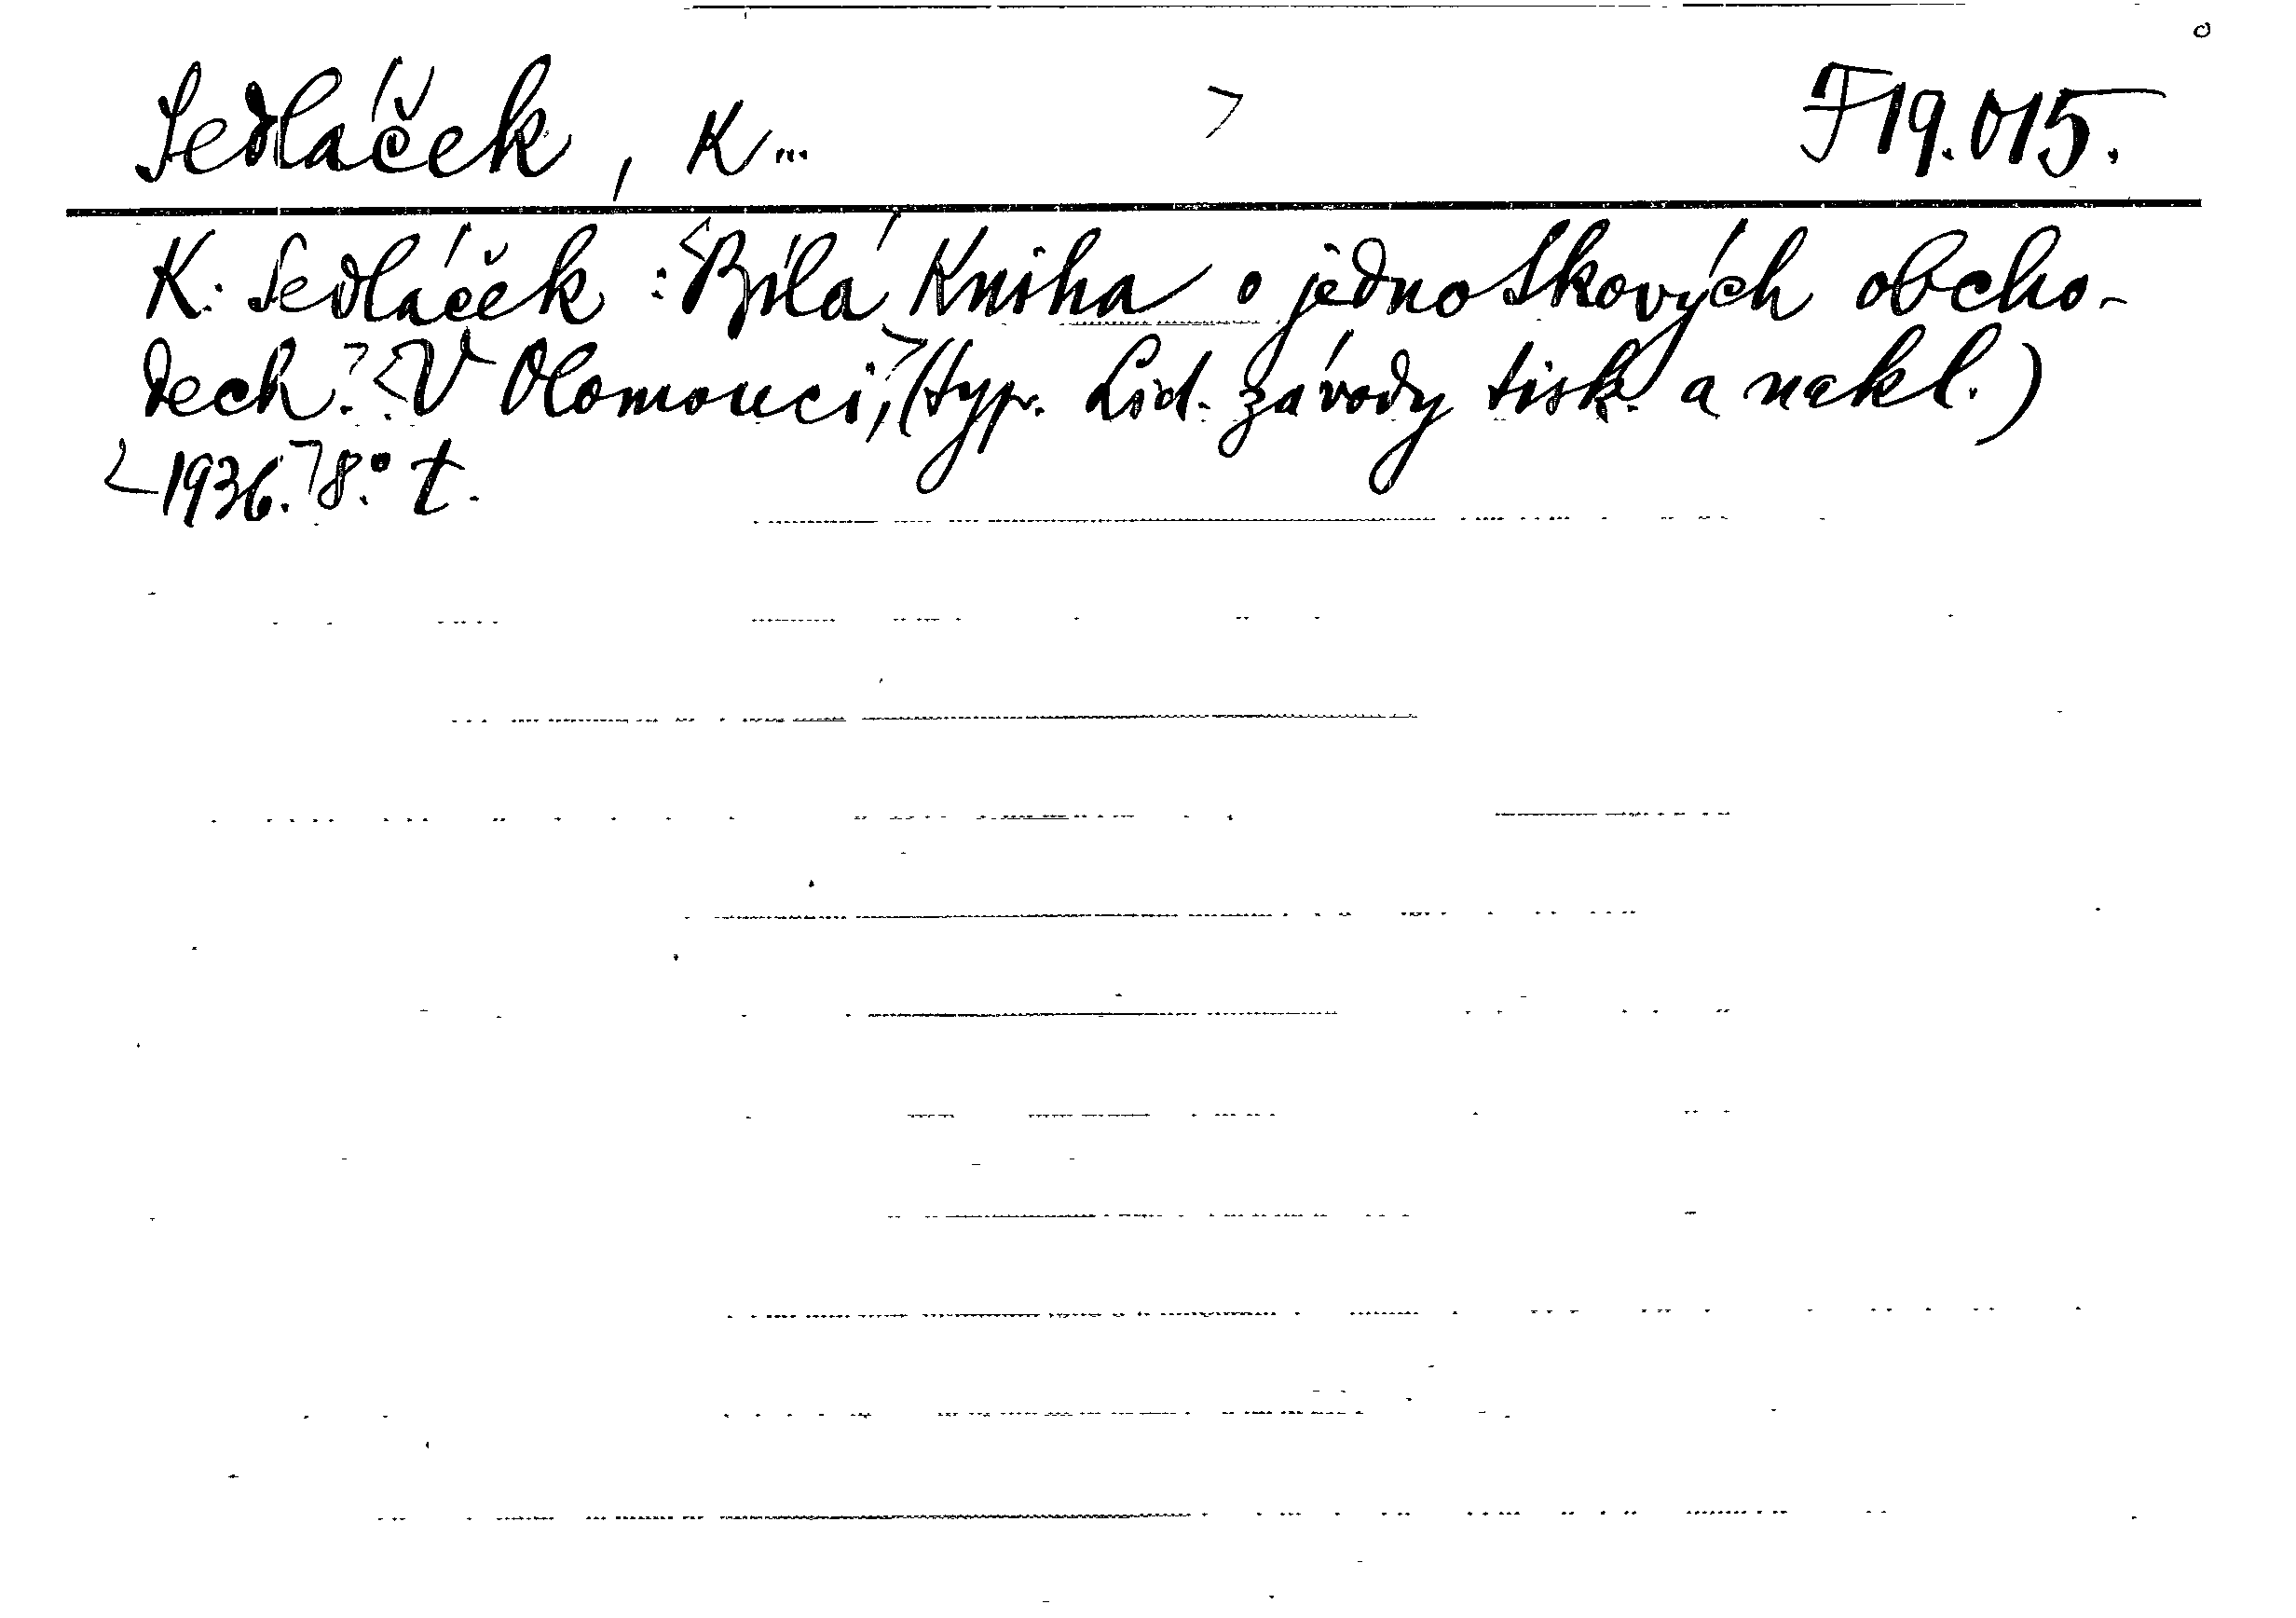 Sedláček, K...  F19.015.
K. Sedláček: Bílá Kniha o jednotkových obcho-
dech. V Olomouci, (typ. Lid. závody tisk. a nakl.)
1936. 8.° t.